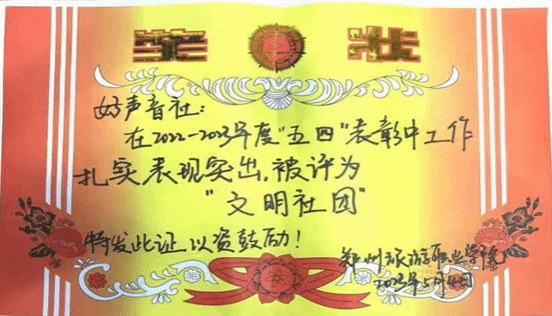 奖 状
好声音社:
在2022-2023年度"五四"表彰中工作
扎实表现突出,被评为
"文明社团"
特发此证,以资鼓励!
郑州旅游职业学院
2023年5月4日